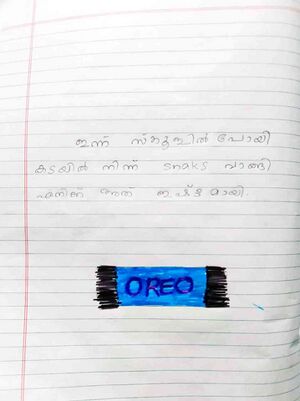 ഇന്ന് സ്കൂളിൽ പോയി
കടയിൽ നിന്ന് snaks വാങ്ങി
എനിക് അത് ഇഷ്ട്ടമായി.
OREO